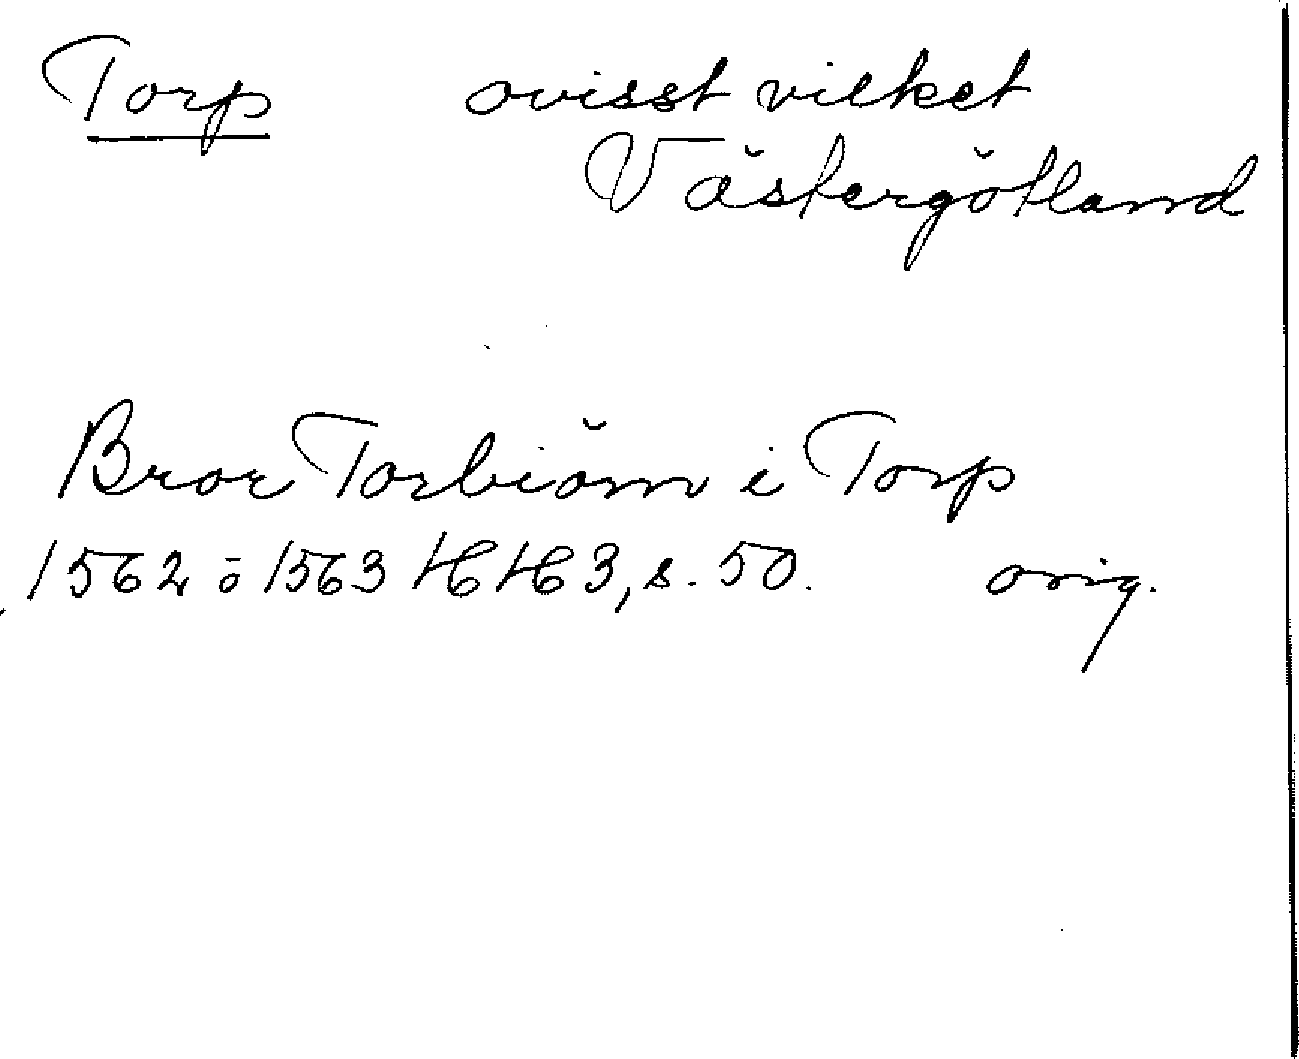 Torp ovisst vilket
Västergötland
Bror Torbiörn i Torp
1562 ō 1563 HH 3, s. 50. orig.